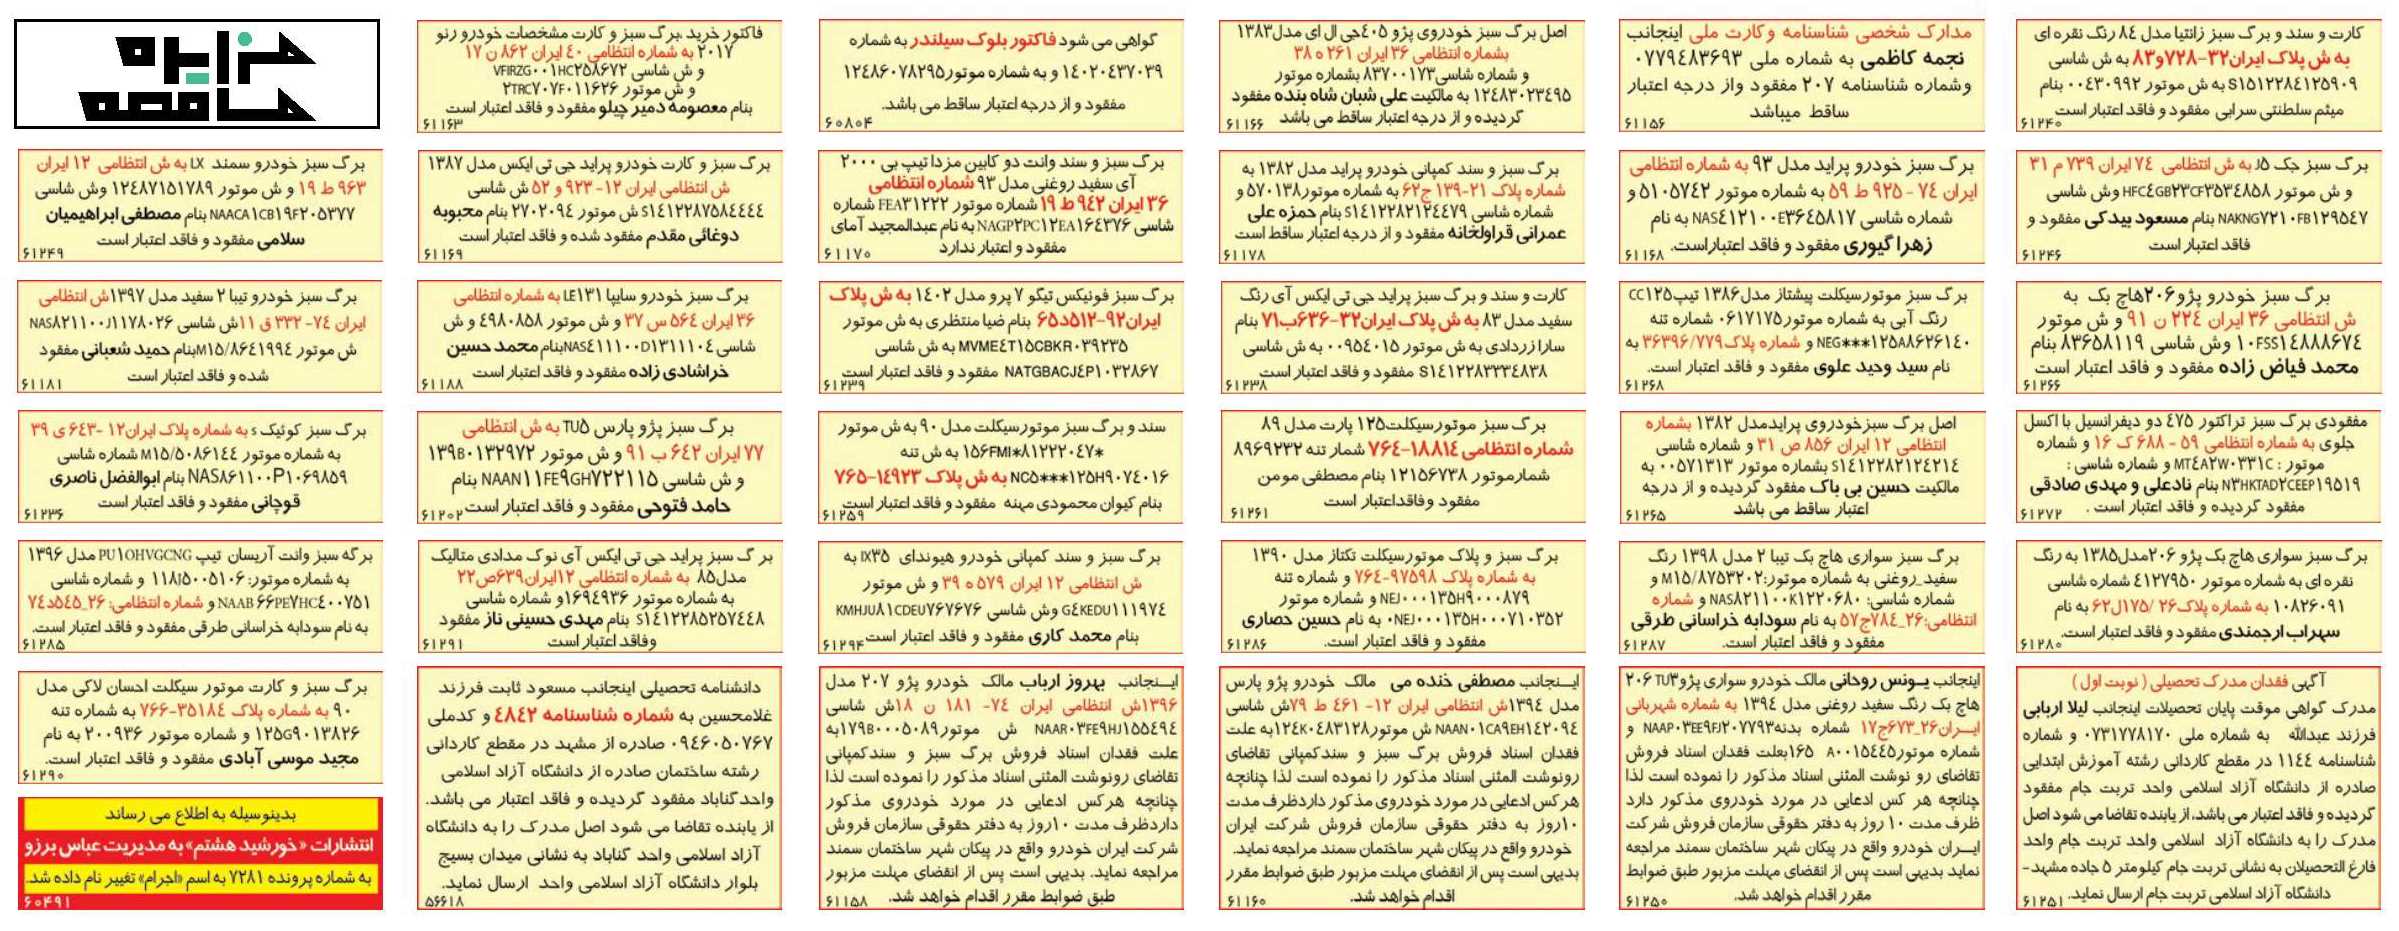 کارت و سند و برگ سبز زانتیا مدل ۸٤ رنگ نقره ای
به ش پلاک ایران۳۲-۷۲۸و۸۳ به ش شاسی
S۱۵۱۲۲۸٤۱۲۵۹۰۹ به ش موتور ۰۰٤۳۰۹۹۲ بنام
میثم سلطنتی سرابی مفقود و فاقد اعتبار است
۶۱۲۴۰
مدارک شخصی شناسنامه وکارت ملی اینجانب
نجمه کاظمی به شماره ملی ۰۷۷۹٤۸۳۶۹۳
وشماره شناسنامه ۲۰۷ مفقود واز درجه اعتبار
ساقط میباشد
۶۱۱۵۶
اصل برگ سبز خودروی پژو ٤۰۵جی ال ای مدل۱۳۸۳
بشماره انتظامی ۳۶ ایران ۲۶۱ ه ۳۸
و شماره شاسی۸۳۷۰۰۱۷۳ بشماره موتور
۱۲٤۸۳۰۲۳٤۹۵ به مالکیت علی شبان شاه بنده مفقود
گردیده و از درجه اعتبار ساقط می باشد
۶۱۱۶۶
گواهی می شود فاکتور بلوک سیلندر به شماره
۱٤۰۲۰٤۳۷۰۳۹ و به شماره موتور۱۲٤۸۶۰۷۸۲۹۵
مفقود و از درجه اعتبار ساقط می باشد.
۶۰۸۰۴
فاکتور خرید ،برگ سبز و کارت مشخصات خودرو رنو
۲۰۱۷ به شماره انتظامی ٤۰ ایران ۸۶۲ ن ۱۷
و ش شاسی VFIRZG۰۰۱HC۲۵۸۶۷۲
و ش موتور ۲TRC۷۰۷F۰۱۱۶۲۶
بنام معصومه دمیر چیلو مفقود و فاقد اعتبار است
۶۱۱۶۳
مزایده
مناقصه
برگ سبز جک J۵ به ش انتظامی ۷٤ ایران ۷۳۹ م ۳۱
و ش موتور HFC٤GB۲۳CF۳۵۳٤۸۵۸ وش شاسی
NAKNG۷۲۱۰FB۱۲۹۵٤۷ بنام مسعود بیدکی مفقود و
فاقد اعتبار است
۶۱۲۴۶
برگ سبز خودرو پراید مدل ۹۳ به شماره انتظامی
ایران ۷٤ - ۹۲۵ ط ۵۹ به شماره موتور ۵۱۰۵۷٤۲ و
شماره شاسی NAS٤۱۲۱۰۰E۳۶٤۵۸۱۷ به نام
زهرا گیوری مفقود و فاقد اعتباراست.
۶۱۱۶۸
برگ سبز و سند کمپانی خودرو پراید مدل ۱۳۸۲ به
شماره پلاک ۲۱-۱۳۹ ج۶۲ به شماره موتور۵۷۰۱۳۸ و
شماره شاسی S۱٤۱۲۲۸۲۱۲٤٤۷۹ بنام حمزه علی
عمرانی قراولخانه مفقود و از درجه اعتبار ساقط است
۶۱۱۷۸
برگ سبز و سند وانت دو کابین مزدا تیپ بی ۲۰۰۰
آی سفید روغنی مدل ۹۳ شماره انتظامی
۳۶ ایران ۹٤۲ ط ۱۹ شماره موتور FEA۳۱۲۲۲ شماره
شاسی NAGP۲PC۱۲EA۱۶٤۳۷۶ به نام عبدالمجید آمای
مفقود و اعتبار ندارد
۶۱۱۷۰
برگ سبز و کارت خودرو پراید جی تی ایکس مدل ۱۳۸۷
ش انتظامی ایران ۱۲- ۹۲۳ و ۵۲ ش شاسی
S۱٤۱۲۲۸۷۵۸٤٤٤٤ ش موتور ۲۷۰۲۰۹٤ بنام محبوبه
دوغائی مقدم مفقود شده و فاقد اعتبار است
۶۱۱۶۹
برگ سبز خودرو سمند LX به ش انتظامی ۱۲ ایران
۹۶۳ ط ۱۹ و ش موتور ۱۲٤۸۷۱۵۱۷۸۹ وش شاسی
NAACA۱CB۱۹F۲۰۵۳۷۷ بنام مصطفی ابراهیمیان
سلامی مفقود و فاقد اعتبار است
۶۱۲۴۹
برگ سبز خودرو پژو۲۰۶هاچ بک به
ش انتظامی ۳۶ ایران ۲۲٤ ن ۹۱ و ش موتور
۱۰FSS۱٤۸۸۸۶۷٤ وش شاسی ۸۳۶۵۸۱۱۹ بنام
محمد فیاض زاده مفقود و فاقد اعتبار است
۶۱۲۶۶
برگ سبز موتورسیکلت پیشتاز مدل۱۳۸۶ تیپCC۱۲۵
رنگ آبی به شماره موتور۰۶۱۷۱۷۵ شماره تنه
NEG***۱۲۵A۸۶۲۶۱٤۰ و شماره پلاک۳۶۳۹۶/۷۷۹ به
نام سید وحید علوی مفقود و فاقد اعتبار است.
۶۱۲۶۸
کارت و سند و برگ سبز پراید جی تی ایکس آی رنگ
سفید مدل ۸۳ به ش پلاک ایران۳۲-۶۳۶ب۷۱ بنام
سارا زردادی به ش موتور ۰۰۹۵٤۰۱۵ به ش شاسی
S۱٤۱۲۲۸۳۳۳٤۸۳۸ مفقود و فاقد اعتبار است
۶۱۲۳۸
برگ سبز فونیکس تیگو ۷ پرو مدل ۱٤۰۲ به ش پلاک
ایران۹۲-۵۱۲د۶۵ بنام ضیا منتظری به ش موتور
MVME٤T۱۵CBKR۰۳۹۲۳۵ به ش شاسی
NATGBACJ٤P۱۰۳۲۸۶۷ مفقود و فاقد اعتبار است
۶۱۲۳۹
برگ سبز خودرو سایپا LE۱۳۱ به شماره انتظامی
۳۶ ایران ۵۶٤ س ۳۷ و ش موتور ٤۹۸۰۸۵۸ و ش
شاسی NAS٤۱۱۱۰۰D۱۳۱۱۱۰٤بنام محمد حسین
خراشادی زاده مفقود و فاقد اعتبار است
۶۱۱۸۸
برگ سبز خودرو تیبا ۲ سفید مدل ۱۳۹۷ش انتظامی
ایران ۷٤- ۳۳۲ ق ۱۱ش شاسی NAS۸۲۱۱۰۰J۱۱۷۸۰۲۶
ش موتور M۱۵/۸۶٤۱۹۹٤بنام حمید شعبانی مفقود
شده و فاقد اعتبار است
۶۱۱۸۱
مفقودی برگ سبز تراکتور ٤۷۵ دو دیفرانسیل با اکسل
جلوی به شماره انتظامی ۵۹ - ۶۸۸ ک ۱۶ و شماره
موتور : MT٤A۲W۰۳۳۱C و شماره شاسی :
N۳HKTAD۲CEEP۱۹۵۱۹ بنام نادعلی و مهدی صادقی
مفقود گردیده و فاقد اعتبار است .
۶۱۲۷۲
اصل برگ سبزخودروی پرایدمدل ۱۳۸۲ بشماره
انتظامی ۱۲ ایران ۸۵۶ ص ۳۱ و شماره شاسی
S۱٤۱۲۲۸۲۱۲٤۲۱٤ بشماره موتور ۰۰۵۷۱۳۱۳ به
مالکیت حسین بی باک مفقود گردیده و از درجه
اعتبار ساقط می باشد
۶۱۲۶۵
برگ سبز موتورسیکلت۱۲۵ پارت مدل ۸۹
شماره انتظامی ۱۸۸۱٤-۷۶٤ شمار تنه ۸۹۶۹۲۳۲
شمارموتور ۱۲۱۵۶۷۳۸ بنام مصطفی مومن
مفقود وفاقداعتبار است
۶۱۲۶۱
سند و برگ سبز موتورسیکلت مدل ۹۰ به ش موتور
۱۵۶FMI*۸۱۲۲۲۰٤۷* به ش تنه
NC۵***۱۲۵H۹۰۷٤۰۱۶ به ش پلاک ۱٤۹۲۳-۷۶۵
بنام کیوان محمودی مهنه مفقود و فاقد اعتبار است
۶۱۲۵۹
برگ سبز پژو پارس TU۵ به ش انتظامی
۷۷ ایران ۶٤۲ ب ۹۱ و ش موتور ۱۳۹B۰۱۳۲۹۷۲
و ش شاسی NAAN۱۱FE۹GH۷۲۲۱۱۵ بنام
حامد فتوحی مفقود و فاقد اعتبار است
۶۱۲۰۲
برگ سبز کوئیک s به شماره پلاک ایران۱۲ -۶٤۳ ی ۳۹
به شماره موتور M۱۵/۵۰۸۶۱٤٤ شماره شاسی
NAS۸۶۱۱۰۰P۱۰۶۹۸۵۹ بنام ابوالفضل ناصری
قوچانی مفقود و فاقد اعتبار است
۶۱۲۳۶
برگ سبز سواری هاچ بک پژو ۲۰۶مدل۱۳۸۵ به رنگ
نقره ای به شماره موتور ٤۱۲۷۹۵۰ شماره شاسی
۱۰۸۲۶۰۹۱ به شماره پلاک۲۶ /۱۷۵ل۶۲ به نام
سهراب ارجمندی مفقود و فاقد اعتبار است.
۶۱۲۸۰
برگ سبز سواری هاچ بک تیبا ۲ مدل ۱۳۹۸ رنگ
سفید_روغنی به شماره موتور:M۱۵/۸۷۵۳۲۰۲ و
شماره شاسی: NAS۸۲۱۱۰۰K۱۲۲۰۶۸۰ و شماره
انتظامی:۲۶_۷۸٤ج۵۷ به نام سودابه خراسانی طرقی
مفقود و فاقد اعتبار است.
۶۱۲۸۷
برگ سبز و پلاک موتورسیکلت تکتاز مدل ۱۳۹۰
به شماره پلاک ۹۷۵۹۸-۷۶٤ و شماره تنه
NEJ۰۰۰۱۳۵H۹۰۰۰۸۷۹ و شماره موتور
۰NEJ۰۰۰۱۳۵H۰۰۰۷۱۰۳۵۲ به نام حسین حصاری
مفقود و فاقد اعتبار است.
۶۱۲۸۶
برگ سبز و سند کمپانی خودرو هیوندای IX۳۵ به
ش انتظامی ۱۲ ایران ۵۷۹ ه ۳۹ و ش موتور
G٤KEDU۱۱۱۹۷٤ وش شاسی KMHJU۸۱CDEU۷۶۷۶۷۶
بنام محمد کاری مفقود و فاقد اعتبار است
۶۱۲۹۴
بر گ سبز پراید جی تی ایکس آی نوک مدادی متالیک
مدل۸۵ به شماره انتظامی ۱۲ایران۶۳۹ص۲۲
به شماره موتور ۱۶۹٤۹۳۶و شماره شاسی
S۱٤۱۲۲۸۵۲۵۷٤٤۸ بنام مهدی حسینی ناز مفقود
وفاقد اعتبار است
۶۱۲۹۱
برگه سبز وانت آریسان تیپ PU۱OHVGCNG مدل ۱۳۹۶
به شماره موتور: ۱۱۸J۵۰۰۵۱۰۶ و شماره شاسی
NAAB۶۶PE۷HC٤۰۰۷۵۱ و شماره انتظامی: ۲۶_۵٤۵د۷٤
به نام سودابه خراسانی طرقی مفقود و فاقد اعتبار است.
۶۱۲۸۵
آگهی فقدان مدرک تحصیلی ( نوبت اول )
مدرک گواهی موقت پایان تحصیلات اینجانب لیلا اربابی
فرزند عبدالله به شماره ملی ۰۷۳۱۷۷۸۱۷۰ و شماره
شناسنامه ۱۱٤٤ در مقطع کاردانی رشته آموزش ابتدایی
صادره از دانشگاه آزاد اسلامی واحد تربت جام مفقود
گردیده و فاقد اعتبار می باشد، از یابنده تقاضا می شود اصل
مدرک را به دانشگاه آزاد اسلامی واحد تربت جام واحد
فارغ التحصیلان به نشانی تربت جام کیلومتر ۵ جاده مشهد-
دانشگاه آزاد اسلامی تربت جام ارسال نماید.
۶۱۲۵۱
اینجانب یـونس روحانی مالک خودرو سواری پژو۲۰۶ TU۳
هاچ بک رنگ سفید روغنی مدل ۱۳۹٤ به شماره شهربانی
ایـران۲۶_۶۷۳ج۱۷ شماره بدنهNAAP۰۳EE۹FJ۲۰۷۷۹۳ و
شماره موتور۱۶۵A۰۰۱۵٤٤۵بعلت فقدان اسناد فروش
تقاضای رو نوشت المثنی اسناد مذکور را نموده است لذا
چنانچه هر کس ادعایی در مورد خودروی مذکور دارد
ظرف مدت ۱۰ روز به دفتر حقوقی سازمان فروش شرکت
ایـران خودرو واقع در پیکان شهر ساختمان سمند مراجعه
نماید بدیهی است پس از انقضای مهلت مزبور طبق ضوابط
مقرر اقدام خواهد شد.
۶۱۲۵۰
اینـجانب مصطفی خنده می مالک خودرو پژو پارس
مدل ۱۳۹٤ش انتظامی ایران ۱۲- ٤۶۱ ط ۷۹ش شاسی
NAAN۰۱CA۹EH۱٤۲۰۹٤ ش موتور۱۲٤K۰٤۸۳۱۲۸به علت
فقدان اسناد فروش برگ سبز و سندکمپانی تقاضای
رونوشت المثنی اسناد مذکور را نموده است لذا چنانچه
هرکس ادعایی در مورد خودروی مذکور داردظرف مدت
۱۰روز به دفتر حقوقی سازمان فروش شرکت ایران
خودرو واقع در پیکان شهر ساختمان سمند مراجعه نماید.
بدیهی است پس از انقضای مهلت مزبور طبق ضوابط مقرر
اقدام خواهد شد.
۶۱۱۶۰
اینـجانب بهروز ارباب مالک خودرو پژو ۲۰۷ مدل
۱۳۹۶ش انتظامی ایران ۷٤- ۱۸۱ ن ۱۸ش شاسی
NAAR۰۳FE۹HJ۱۵۵٤۹٤ ش موتور۱۷۹B۰۰۰۵۰۸۹به
علت فقدان اسناد فروش برگ سبز و سندکمپانی
تقاضای رونوشت المثنی اسناد مذکور را نموده است لذا
چنانچه هرکس ادعایی در مورد خودروی مذکور
داردظرف مدت ۱۰روز به دفتر حقوقی سازمان فروش
شرکت ایران خودرو واقع در پیکان شهر ساختمان سمند
مراجعه نماید. بدیهی است پس از انقضای مهلت مزبور
طبق ضوابط مقرر اقدام خواهد شد.
۶۱۱۵۸
دانشنامه تحصیلی اینجانب مسعود ثابت فرزند
غلامحسین به شماره شناسنامه ٤۸٤۲ و کدملی
۰۹٤۶۰۵۰۷۶۷ صادره از مشهد در مقطع کاردانی
رشته ساختمان صادره از دانشگاه آزاد اسلامی
واحدگناباد مفقود گردیده و فاقد اعتبار می باشد.
از یابنده تقاضا می شود اصل مدرک را به دانشگاه
آزاد اسلامی واحد گناباد به نشانی میدان بسیج
بلوار دانشگاه آزاد اسلامی واحد ارسال نماید.
۵۶۶۱۸
برگ سبز و کارت موتور سیکلت احسان لاکی مدل
۹۰ به شماره پلاک ۳۵۱۸٤-۷۶۶ به شماره تنه
۱۲۵G۹۰۱۳۸۲۶ و شماره موتور ۲۰۰۹۳۶ به نام
مجید موسی آبادی مفقود و فاقد اعتبار است.
۶۱۲۹۰
بدینوسیله به اطلاع می رساند
انتشارات «خورشید هشتم» به مدیریت عباس برزو
به شماره پرونده ۷۲۸۱ به اسم «اجرام» تغییر نام داده شد.
۶۰۴۹۱